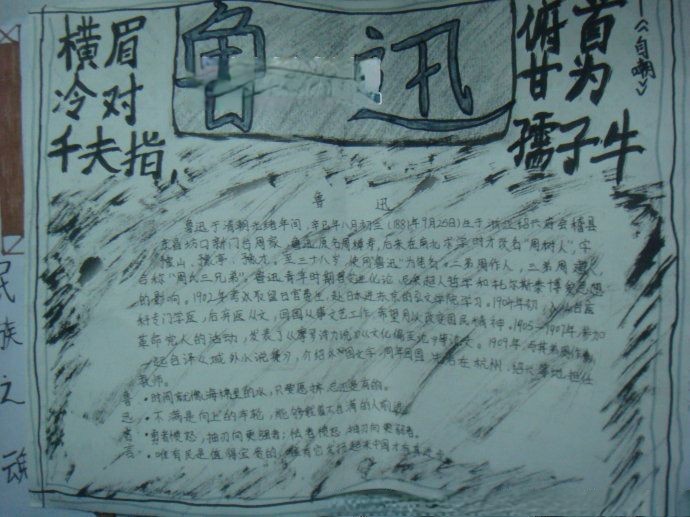 横眉
冷对
千夫指，
鲁迅
俯首
甘为
孺子牛
—《自嘲》
民族之魂
鲁迅
鲁迅于清朝光绪年间，辛巳年八月初三(1881年9月25日)生于浙江绍兴府会稽县
东昌坊口新门台周家。鲁迅原名周樟寿，后来在南京求学时才改名“周树人”，字
豫山、豫亭、豫才。至三十八岁，使用鲁迅为笔名。二弟周作人，三弟周建人，
合称“周氏三兄弟”。鲁迅青年时期受进化论、尼采超人哲学和托尔斯泰博爱思想
的影响。1902年考取留日官费生，赴日本进东京的弘文学院学习。1904年初，入仙台医
科专门学医，后弃医从文，回国从事文艺工作，希望用以改变国民精神。1905—1907年，参加
革命党人的活动，发表了《摩罗诗力说》《文化偏至论》等论文。1909年，与其弟周作人
一起合译《域外小说集》，介绍外国文学，同年回国，先后在杭州、绍兴等地担任
教师。
鲁 •时间就像海绵里的水，只要愿挤，总还是有的。
迅 •不满是向上的车轮，能够载着不自满的人前进。
名 •勇者愤怒，抽刃向更强者；怯者愤怒，抽刃向更弱者。
言 •唯有民是值得宝贵的，唯有它发扬起来中国才有真进步